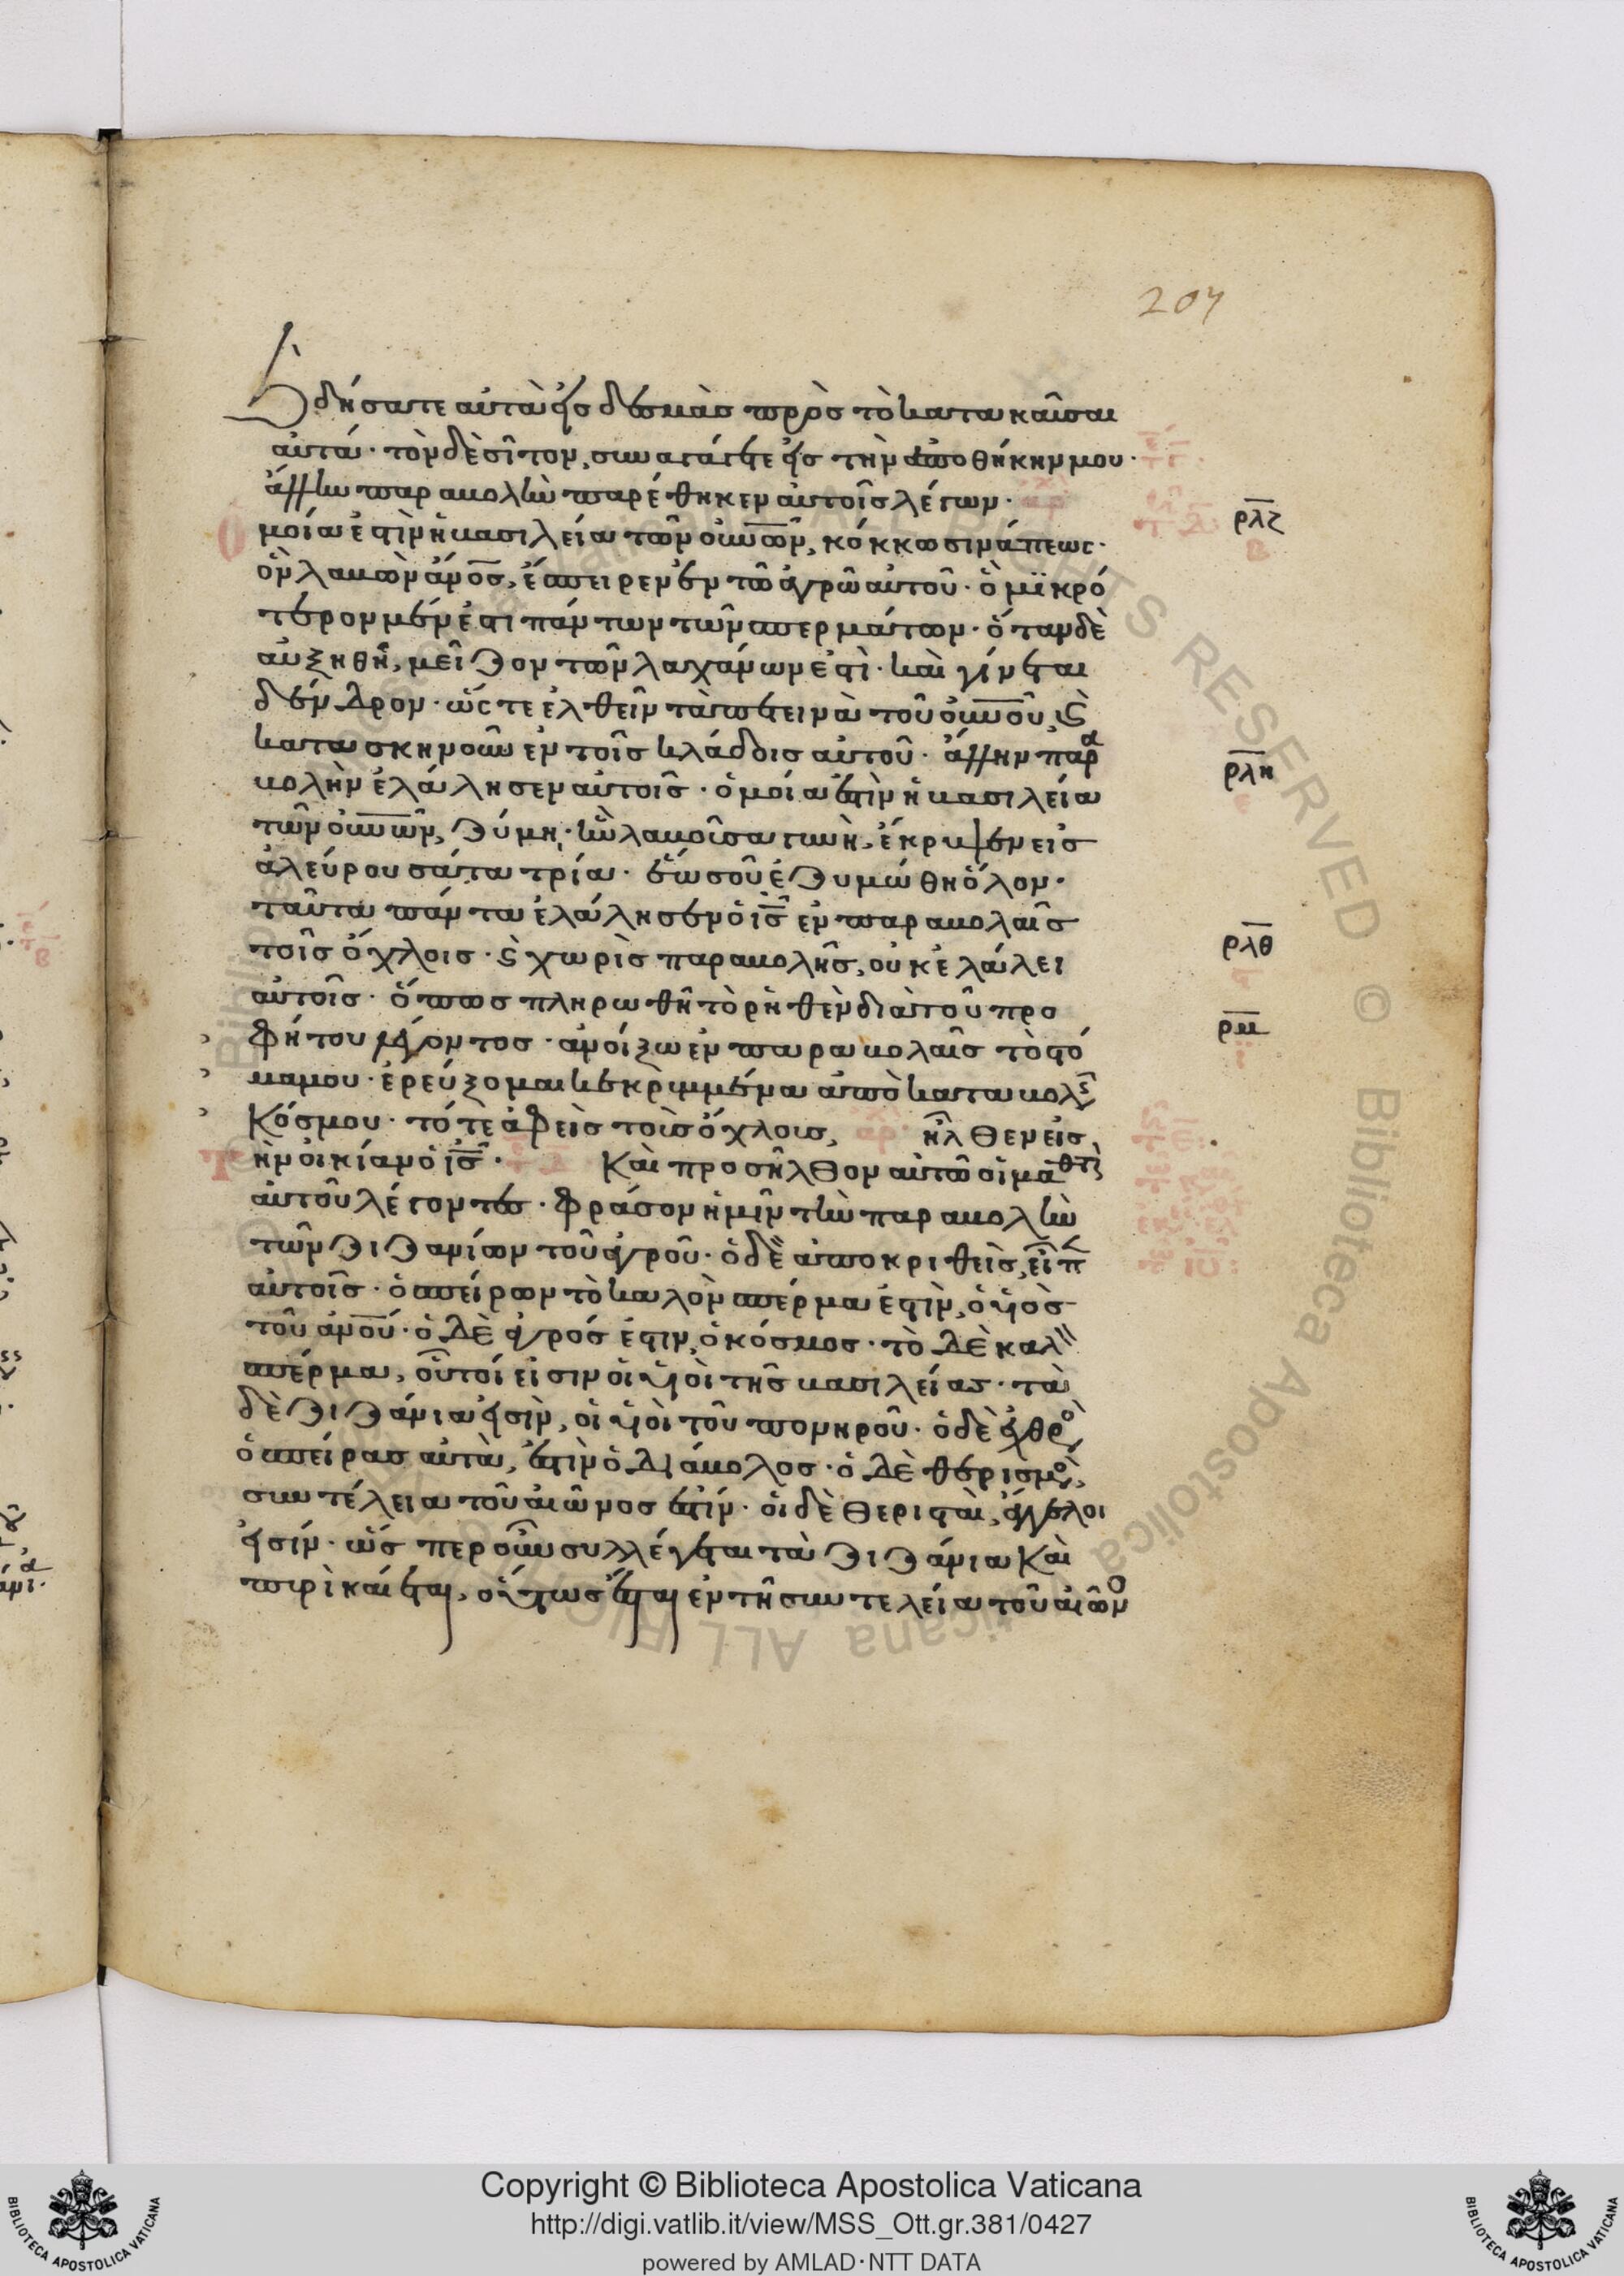 207
δήσατε αὐτὰ εἰς δεσμὰς πρὸς τὸ κατακαῦσαι
αὐτά· τὸν δὲ σῖτον, συναγάγετε εἰς τὴν ἀποθήκην μου·
ἄλλην παραβολὴν παρέθηκεν αὐτοῖς λέγων·
Ομοία ἐστὶν ἡ βασιλεία τῶν οὐνῶν, κόκκω σινάπεως·
ὃν λαβὼν ἄνος, ἔσπειρεν ἐν τῶ ἀγρῶ αὐτοῦ· ὃ μϊκρό
τερον μέν ἐστι πάντων τῶν σπερμάτων· ὅταν δὲ
αὐξηθῆ, μεῖζον τῶν λαχάνων ἐστὶ· καὶ γίνεται
δένδρον· ὥστε ἐλθεῖν τὰ πετεινὰ τοῦ οὐνοῦ, ϗ
κατασκηνοῦν ἐν τοῖς κλάδοις αὐτοῦ· ἄλλην παρα
βολὴν ἐλάλησεν αὐτοῖς· ὁμοία ἐστὶν ἡ βασιλεία
τῶν οὐνῶν, ζύμη· ἣν λαβοῦσα γυνὴ, ἔκρυψεν εἰς
ἀλεύρου σάτα τρία· ἕως οὗ ἐζυμώθη ὅλον·
ταῦτα πάντα ἐλάλησεν ὁ ις ἐν παραβολαῖς
τοῖς ὄχλοις· ϗ χωρὶς παραβολῆς, οὐκ ἐλάλει
αὐτοῖς· ὅπως πληρωθῆ τὸ ῥηθὲν διὰ τοῦ προ
φήτου λέγοντος· ἀνοίξω ἐν παραβολαῖς τὸ στό
μα μου· ἐρεύξομαι κεκρὑμμένα ἀπὸ καταβολῆς
Κόσμου· τότε ἀφεὶς τοὺς ὄχλους, ἦλθεν εἰς
τὴν οἰκίαν ὁ ις· Καὶ προσῆλθον αὐτῶ οἱ μαθηταὶ
αὐτοῦ λέγοντες· φράσον ἡμῖν τὴν παραβολὴν
τῶν ζιζανίων τοῦ ἀγροῦ· ὁ δὲ ἀποκριθεὶς, εἶπεν
αὐτοῖς· ὁ σπείρων τὸ καλὸν σπέρμα ἐστὶν, ὁ υἱὸς
τοῦ ἀνου· ὁ δὲ ἀγρός ἐστιν, ὁ κόσμος· τὸ δὲ καλὸν
σπέρμα, οὗτοί εἰσιν οἱ υἱοὶ τῆς βασιλείας· τὰ
δὲ ζιζάνια εἰσὶν, οἱ υἱοὶ τοῦ πονηροῦ· ὁ δὲ ἐχθρὸς
ὁ σπείρας αὐτὰ, ἐστὶν ὁ διάβολος· ὁ δὲ θερισμὸς,
συντέλεια τοῦ αἰῶνος ἐστίν· οἱ δὲ θερισταὶ, ἄγγελοι
εἰσίν· ὥσπερ οὖν συλλέγεται τὰ ζιζάνια Καὶ
πυρὶ καίεται, οὕτως ἔσται ἐν τῆ συντελεία τοῦ αἰῶνο
ρλζ
ρλη
ρλθ
ρμ
Copyright © Biblioteca Apostolica Vaticana
http://digi.vatlib.it/view/MSS_Ott.gr.381/0427
powered by AMLAD·NTT DATA